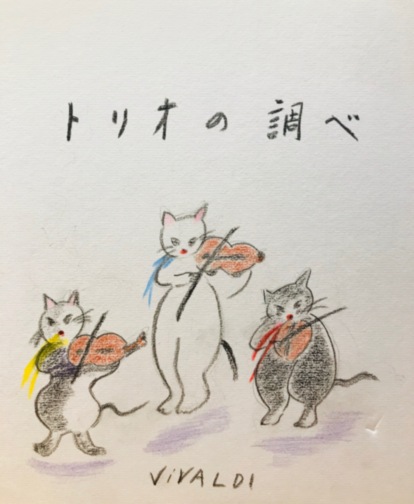 トリオの調べ
ViVALDI